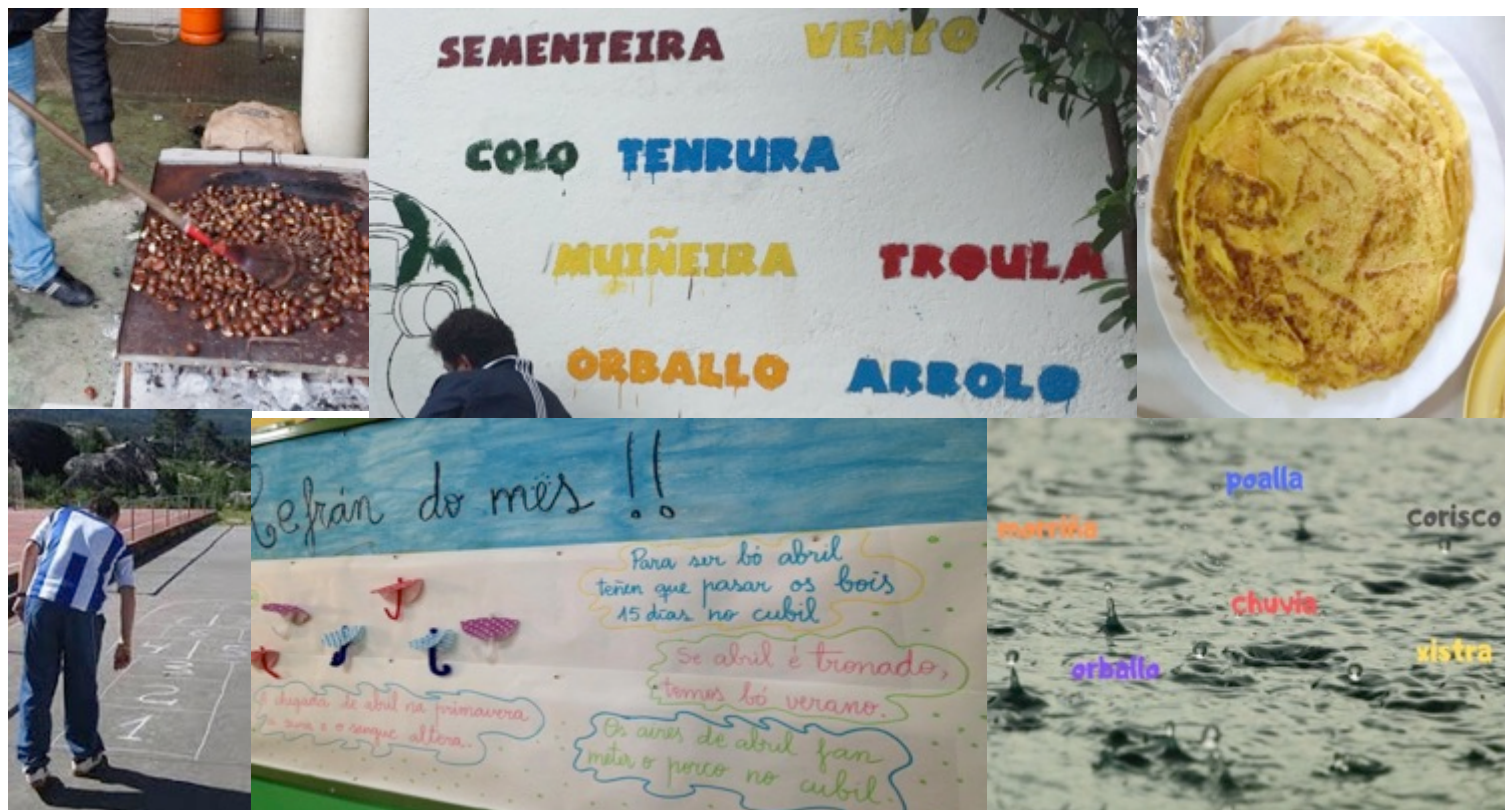 SEMENTEIRA VENTO
COLO TENRURA
MUIÑEIRA TROULA
ORBALLO ARROLO
Refrán do mes !!
Para ser bó abril
teñen que pasar os bois
15 días no cubil
Se abril é tronado,
temos bó verano.
chegada de abril na primavera
e o sangue altera.
Os aires de abril fan
meter o porco no
cubil.
4 5
3
2
1
poalla
morriña corisco
chuvia
orballo xistra